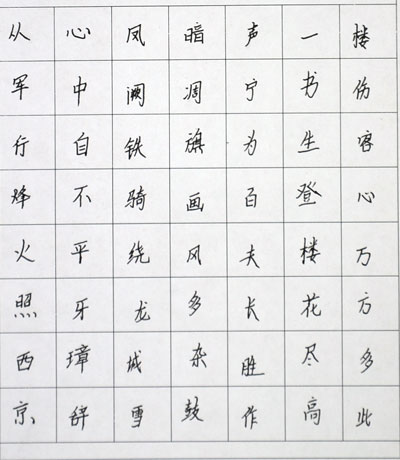 从军行烽火照西京
心中自不平牙璋辞
凤阙铁骑绕龙城雪
暗凋旗画风多杂鼓
声宁为百夫长胜作
一书生登楼花尽高
楼伤客心万方多此